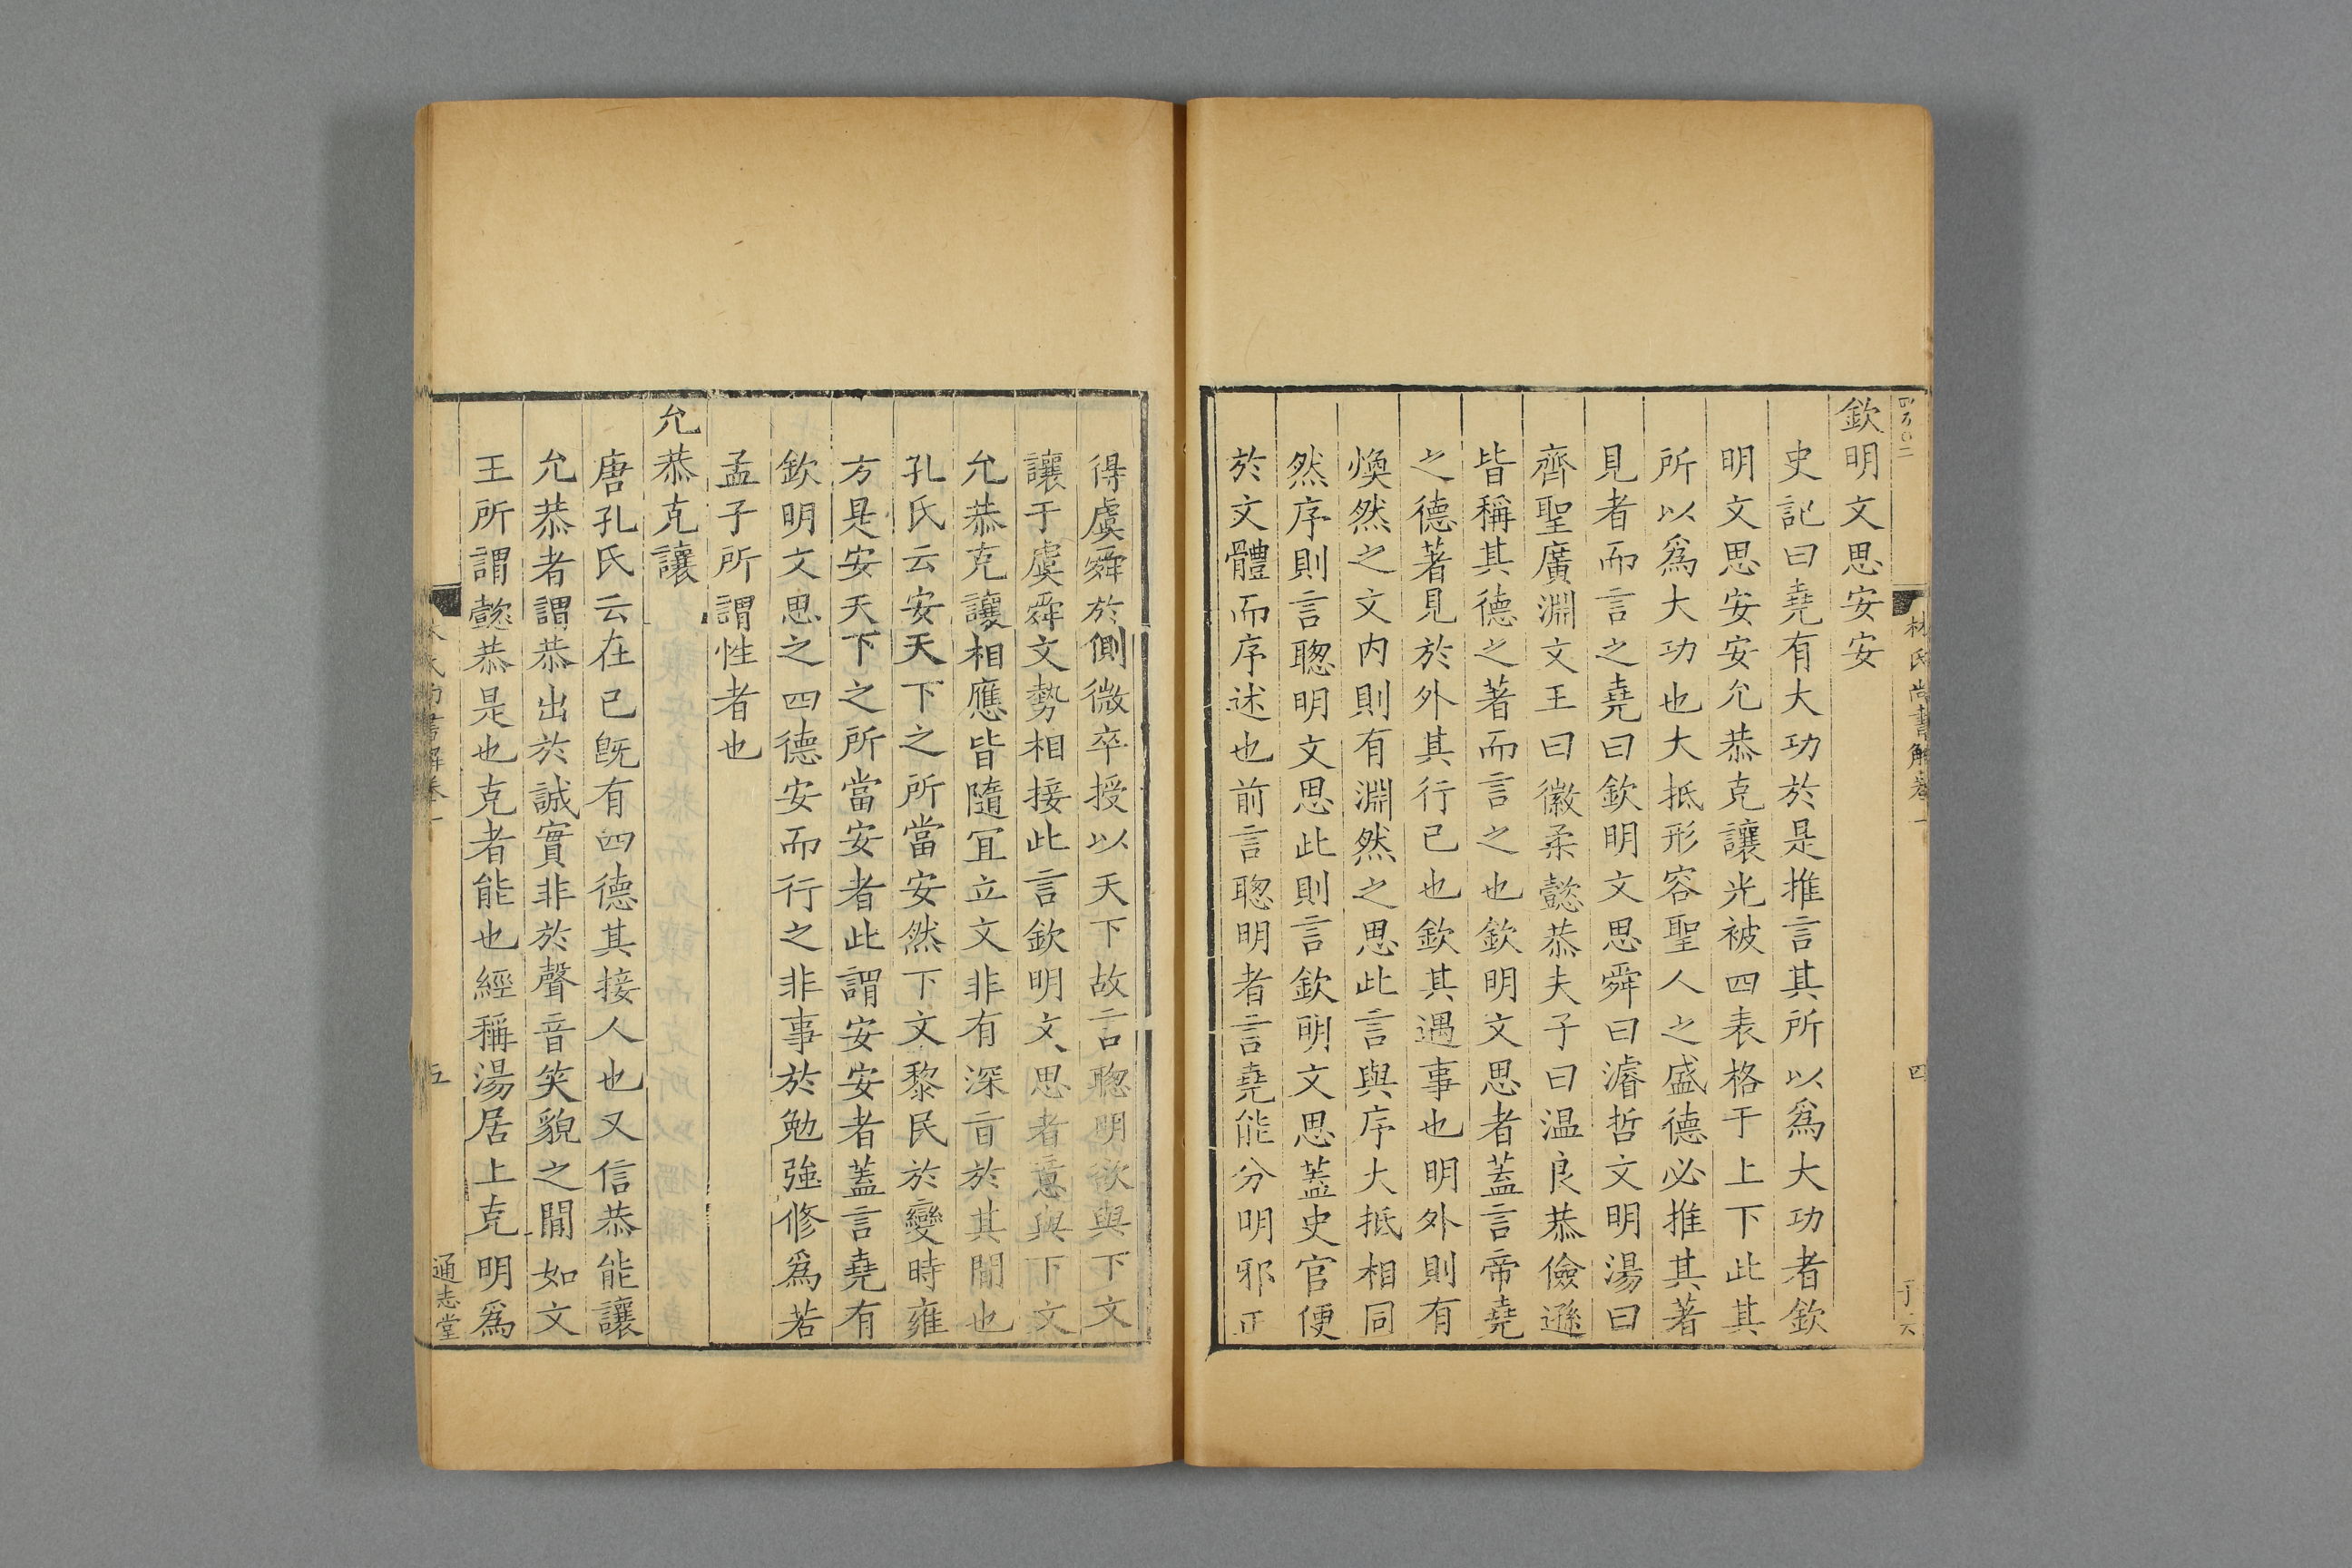 林氏尚書解卷一
四
欽明文思安安
史記曰堯有大功於是推言其所以爲大功者欽
明文思安安允恭克讓光被四表格于上下此其
所以爲大功也大抵形容聖人之盛德必推其著
見者而言之堯曰欽明文思舜曰濬哲文明湯曰
齊聖廣淵文王曰徽柔懿恭夫子曰温良恭儉遜
皆稱其德之著而言之也欽明文思者蓋言帝堯
之德著見於外其行已也欽其遇事也明外則有
煥然之文内則有淵然之思此言與序大抵相同
然序則言聰明文思此則言欽明文思蓋史官便
於文體而序述也前言聰明者言堯能分明邪正
得虞舜於側微卒授以天下故言聰明欲與下文
讓于虞舜文勢相接此言欽明文思者意與下文
允恭克讓相應皆隨冝立文非有深㫖於其間也
孔氏云安天下之所當安然下文黎民於變時雍
方是安天下之所當安者此謂安安者蓋言堯有
欽明文思之四德安而行之非事於勉強修爲若
孟子所謂性者也
允恭克讓
唐孔氏云在已既有四德其接人也又信恭能讓
允恭者謂恭出於誠實非於聲音笑貌之間如文
王所謂懿恭是也克者能也經稱湯居上克明爲
氏尚書解卷一
五
通志堂